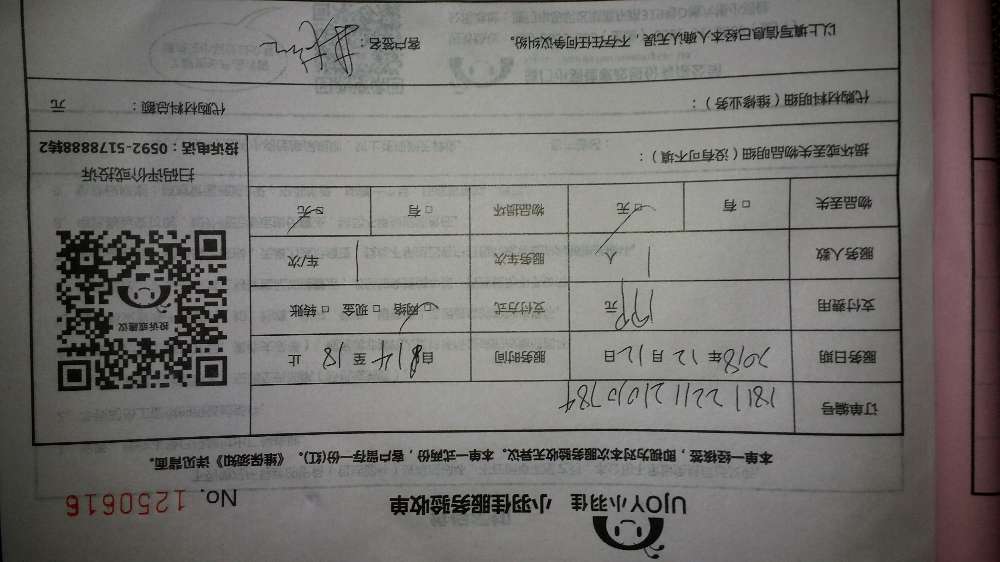 UJOY小羽佳 小羽佳服务验收单 No. 1250616
本单一经核签，即视为对本次服务验收无异议。本单一式两份，客户留存一份(红)。《维保须知》详见背面。
订单编号 1811221121010784
服务日期 2018年12月12日 服务时间 自 14至18止
支付费用 199元 支付方式 ☑网络 □现金 □转账
服务人数 1人 服务车次 1车/次
物品丢失 □有 ☑无 物品损坏 □有 ☑无
损坏或丢失物品明细（没有可不填）：
投诉或建议
扫码评价或投诉
投诉电话：0592-5178888转2
代购材料明细（维修业务）： 代购材料总额： 元
以上填写信息已经本人确认无误，不存在任何争议纠纷。 客户签名：